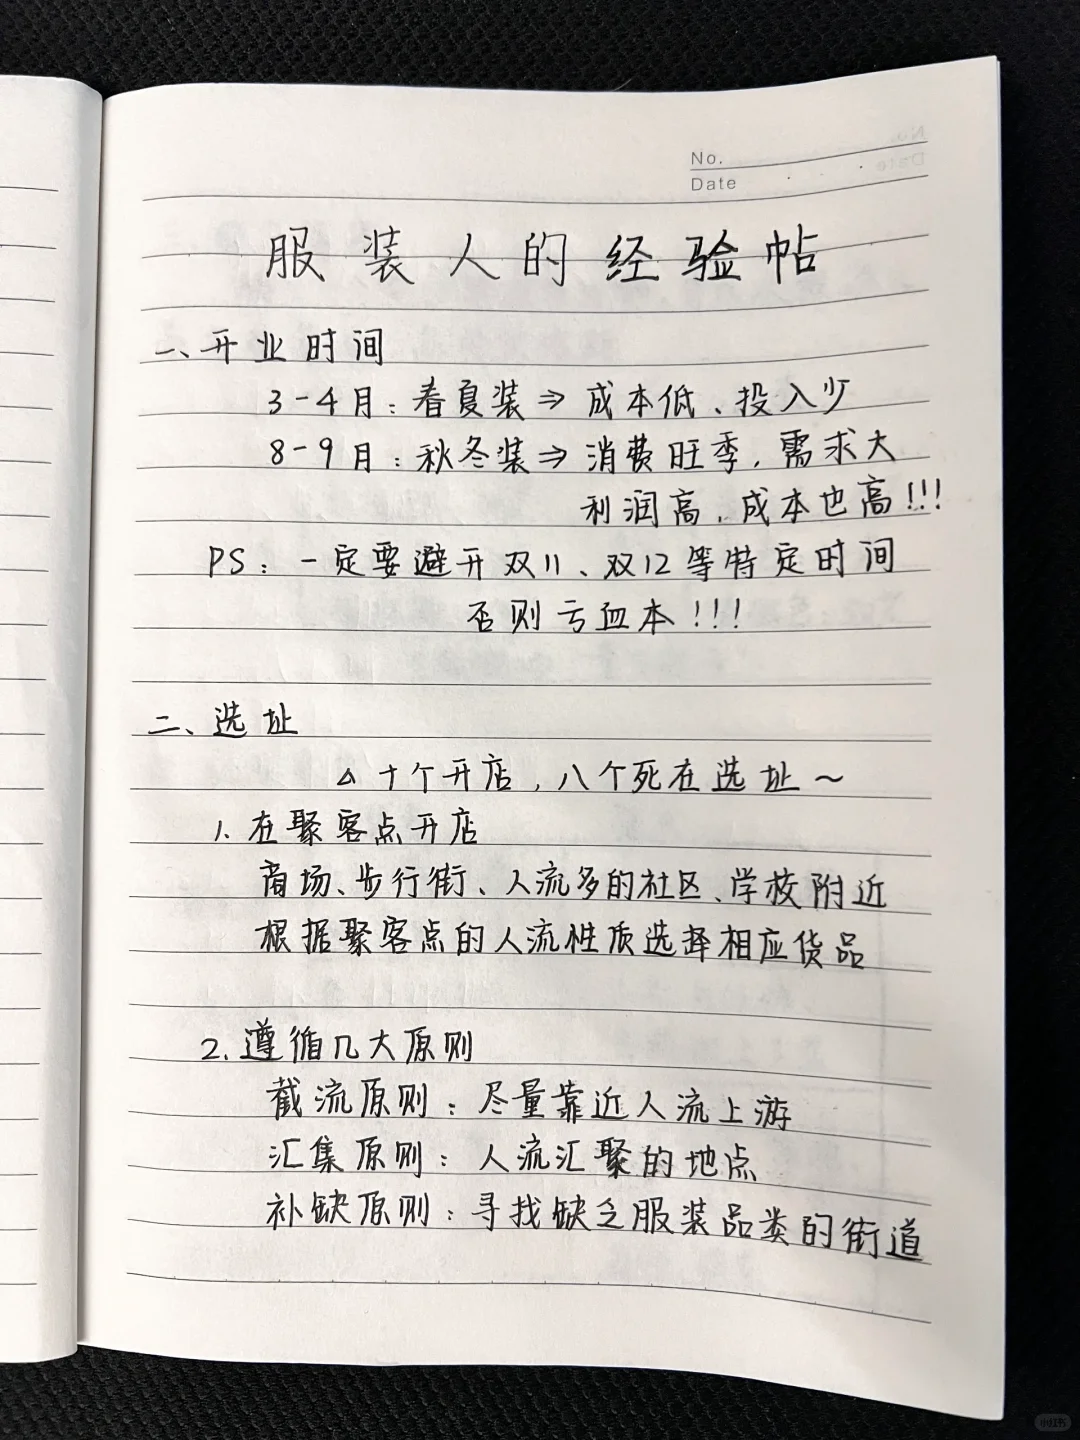 No.
Date
服装人的经验帖
一、开业时间
3-4月：春夏装⇒成本低、投入少
8-9月：秋冬装⇒消费旺季，需求大
利润高，成本也高!!!
PS：一定要避开双11、双12等特定时间
否则亏血本!!!
二、选址
△十个开店，八个死在选址~
1.在聚客点开店
商场、步行街、人流多的社区、学校附近
根据聚客点的人流性质选择相应货品
2.遵循几大原则
截流原则：尽量靠近人流上游
汇集原则：人流汇聚的地点
补缺原则：寻找缺乏服装品类的街道
小红书